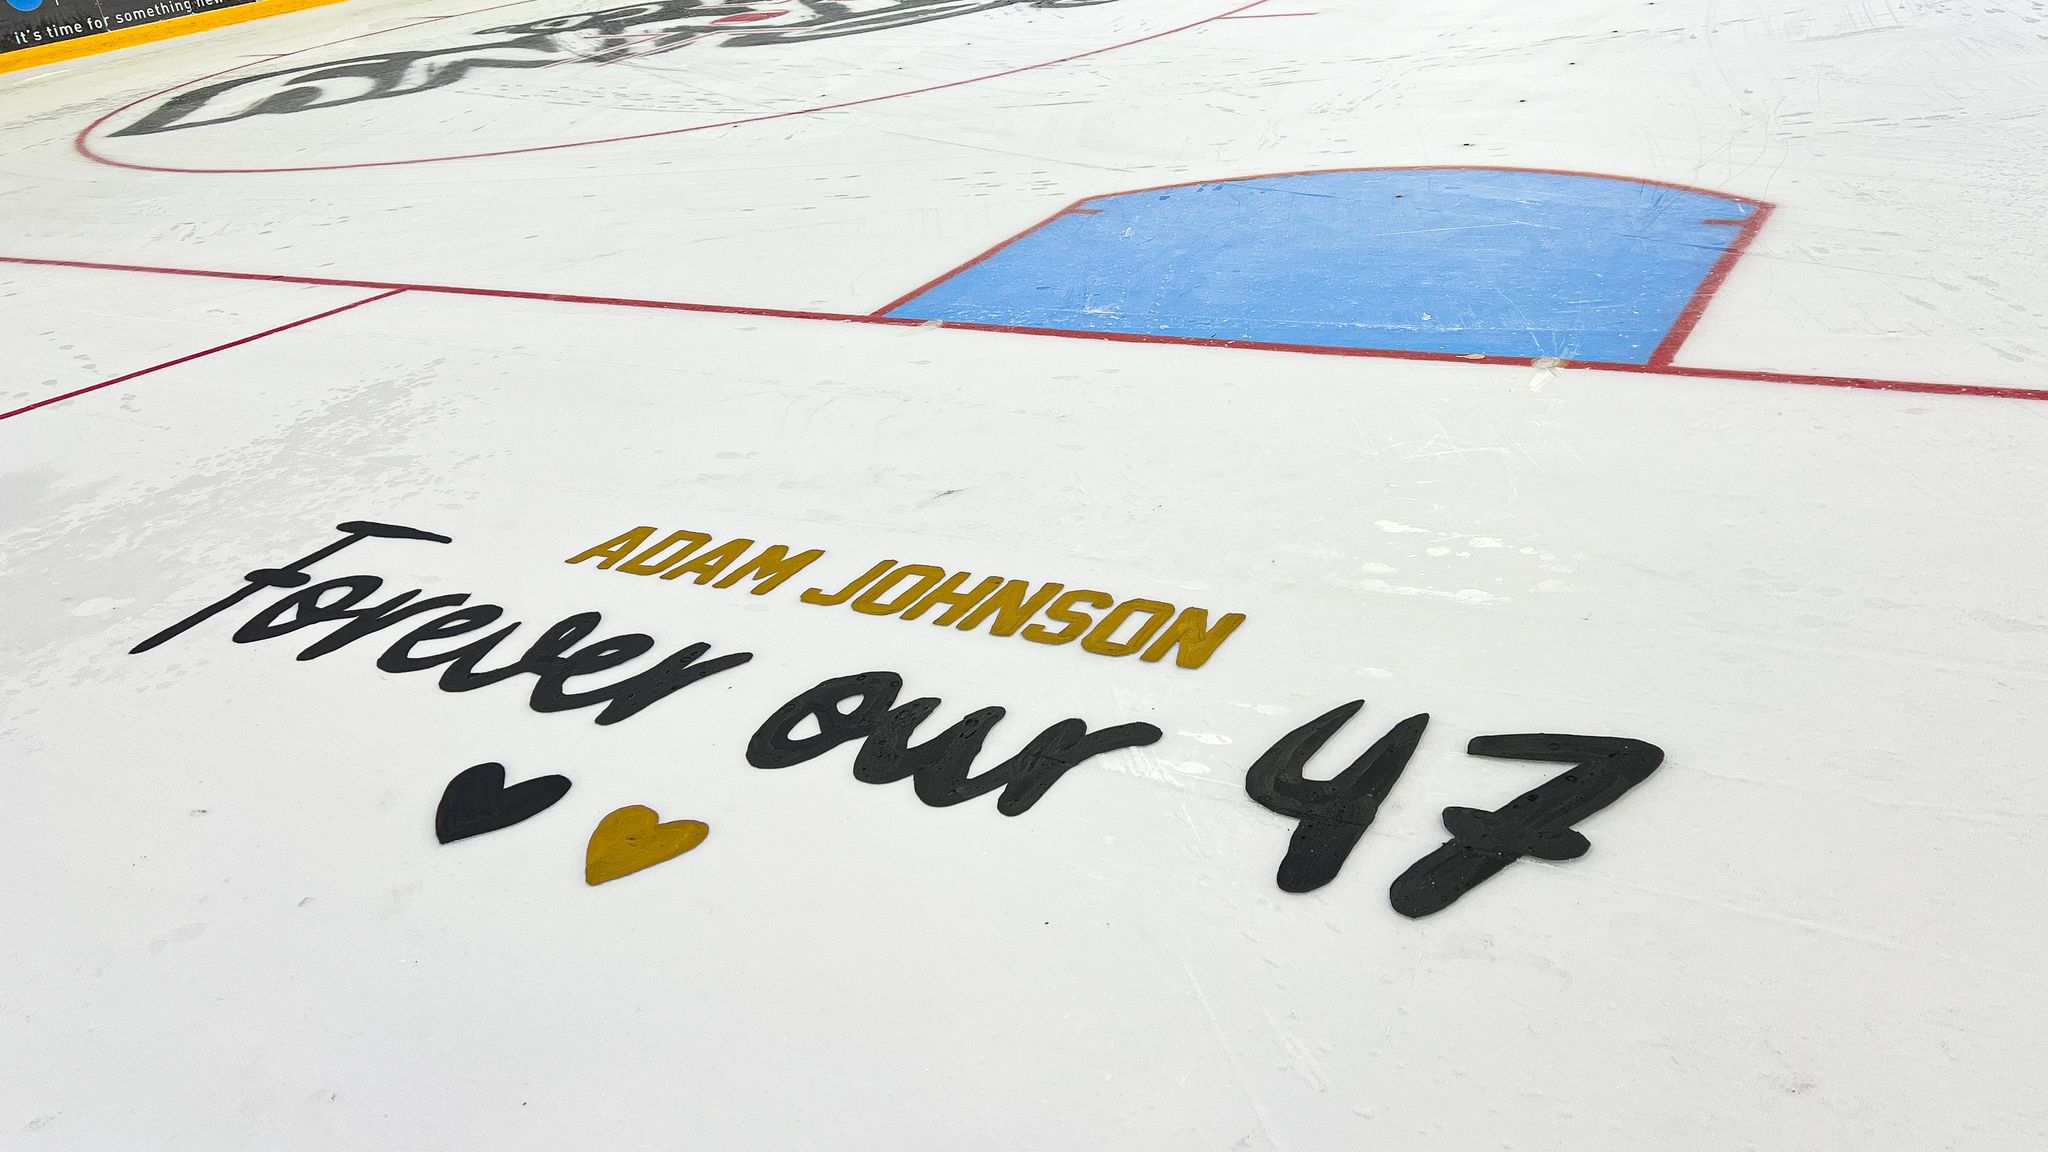 it's time for something new
ADAM JOHNSON
Forever our 47